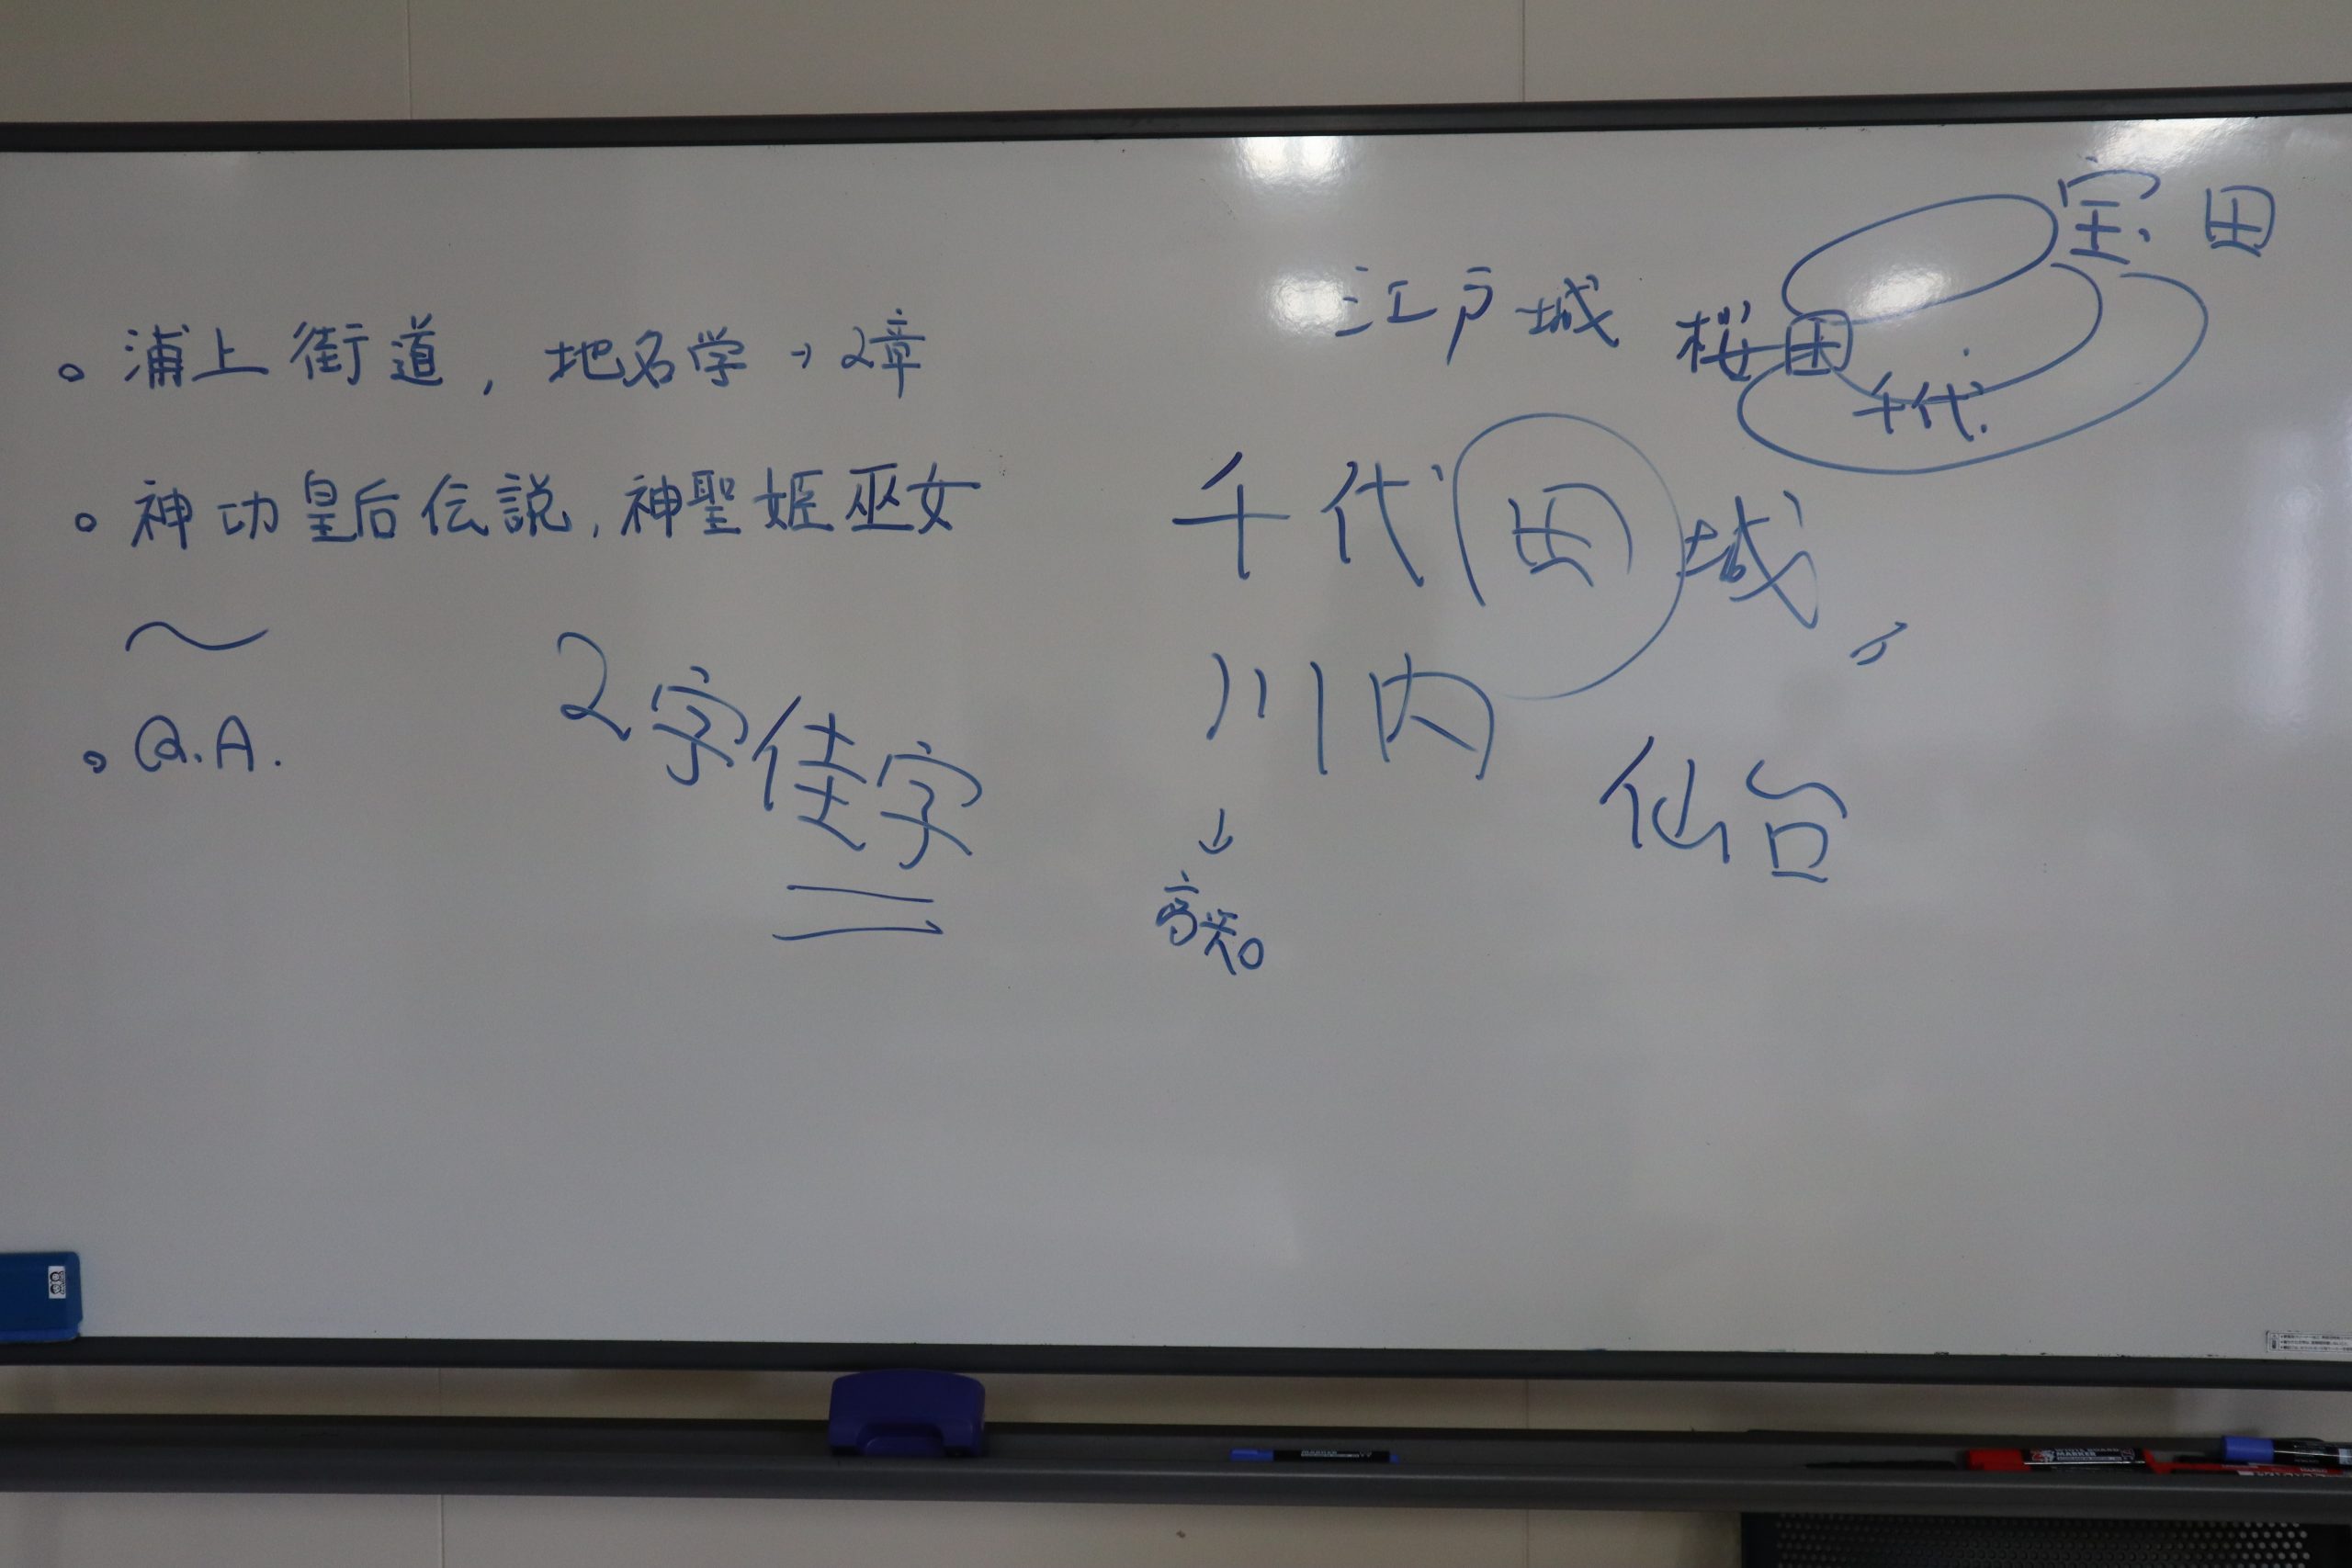 。浦上街道, 地名学→2章
。神功皇后伝説, 神聖姫巫女
〜
。Q.A.
2字佳字
江戸城
桜田
宝田
千代
千代田城
川内
↓
高知
仙台